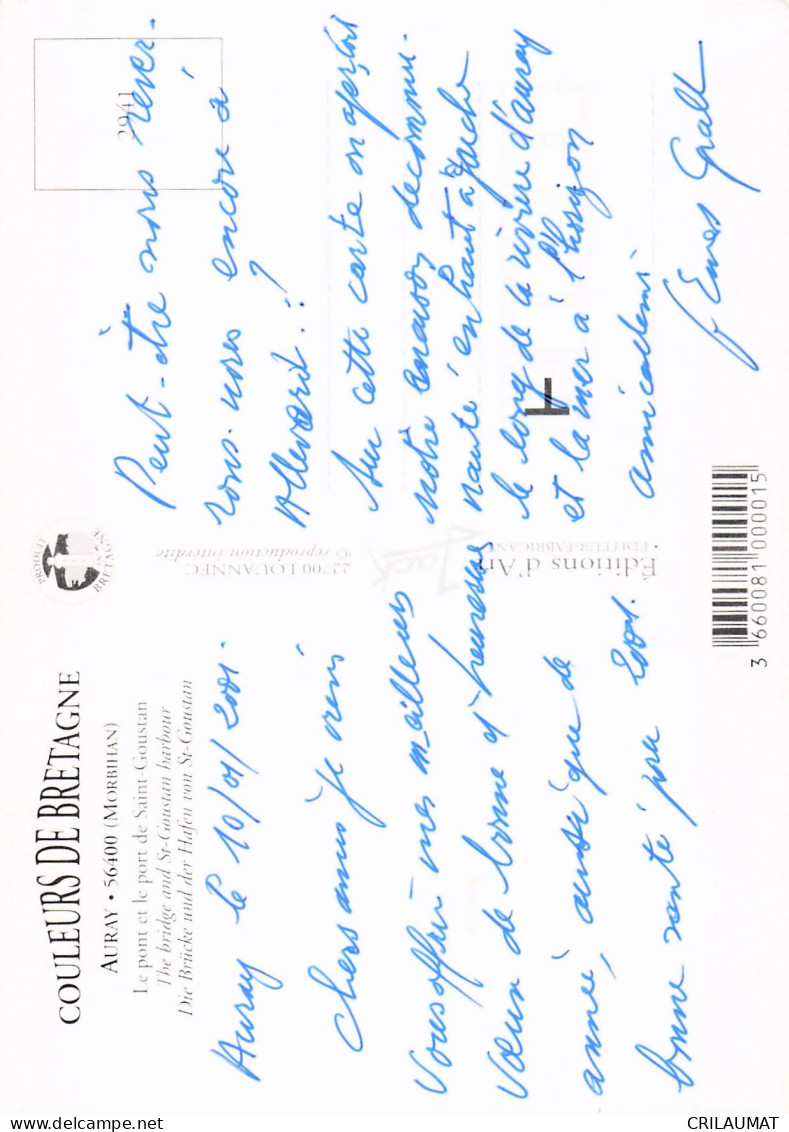 COULEURS DE BRETAGNE
AURAY • 56400 (MORBIHAN)
Le pont et le port de Saint-Goustan
The bridge and St-Goustan harbour
Die Brücke und der Hafen von St-Goustan
Auray le 10/01/2001.
Chers amis je viens
Vous offrir mes meilleurs
Vœux de bonne et heureuse
année, ainsi que de
bonne santé pour 2001.
PRODUIT EN BRETAGNE
22700 LOUANNEC
© reproduction interdite
Jack
Éditions d'Art
• ÉDITEUR-FABRICANT
2941
Peut-être nous rever-
rons-nous encore à
Allevard..?
Sur cette carte on aperçoit
notre maison de commu-
nauté en haut à gauche
le long de la rivière d'Auray
et la mer à l'horizon
amicalement
Grall
3 660081 000015
CRILAUMAT